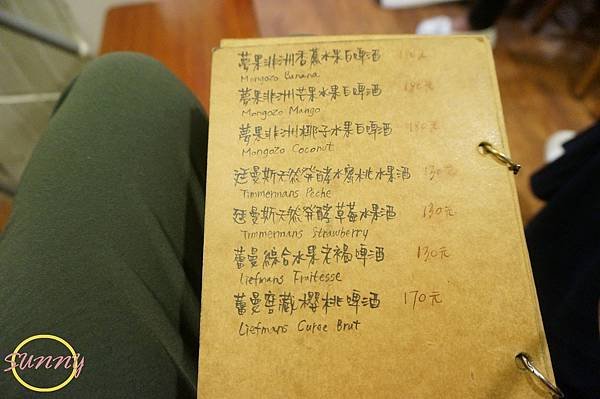 夢果非洲香蕉水果白啤酒
Mongozo Banana
夢果非洲芒果水果白啤酒 180元
Mongozo Mango
夢果非洲椰子水果白啤酒 180元
Mongozo Coconut
廷曼斯天然發酵水蜜桃水果酒 130元
Timmermans Peche
廷曼斯天然發酵草莓水果酒 130元
Timmermans Strawberry
蕾曼綜合水果老褐啤酒 130元
Liefmans Fruitesse
蕾曼窖藏櫻桃啤酒 170元
Liefmans Curoe Brut
sunny